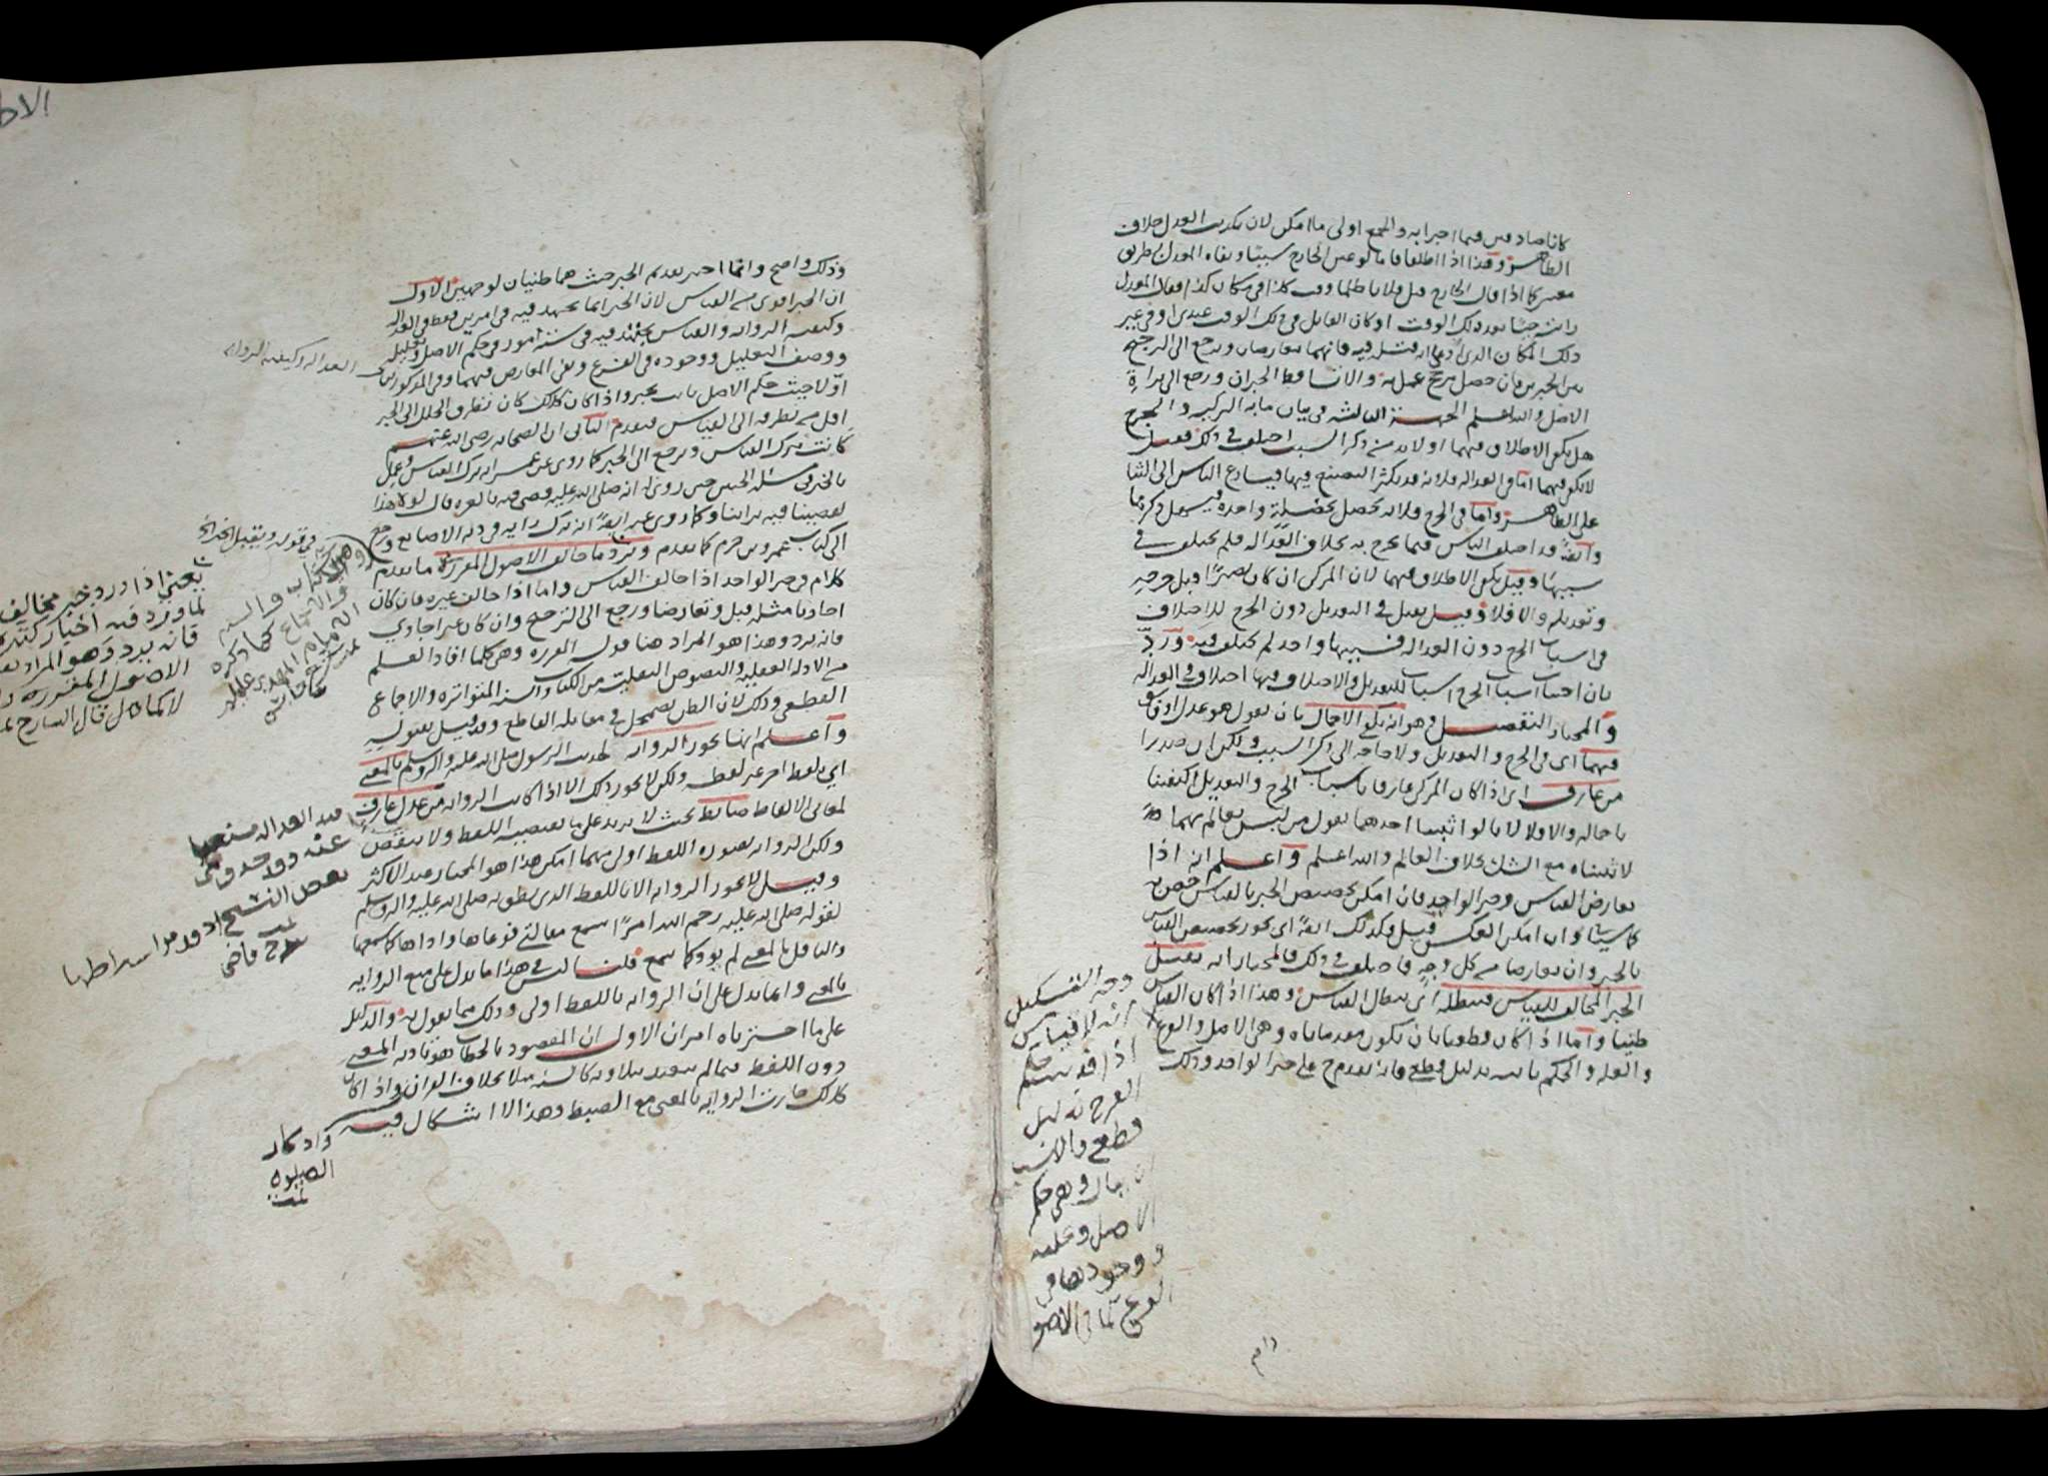 كانا صادقين فيما اخبرا به والجمع اولى ما امكن لان تكذيب العدل خلاف
الظاهر وهذا اذا اطلقا فاما لو عين الجارح سببًا ونفاه المعدل بطريق
معتبر كما اذا قال الجارح قتل فلانا ظلما وقت كذا في مكان كذا فقال المعدل
رايته حيًّا بعد ذلك الوقت او كان القاتل في ذلك الوقت عندي او في غير
ذلك المكان الذي ادعى انه قتله فيه فانهما يتعارضان ويرجع الى الترجيح
بين الخبرين فان حصل مرجح عمل به والا تساقط الخبران ورجع الى براة
الاصل والله اعلم الجهة الثالثة في بيان ما به التزكيه والجرح
هل يكفي الاطلاق فيهما او لا بد من ذكر السبب اختلف في ذلك فقيل
لا يكفي فيهما اما في العداله فلانه قد يكثر التصنع فيها فيسارع الناس الى الثنا
على الظاهر واما في الجرح فلانه يحصل بخصلة واحدة فيسهل ذكرها
وايضًا قد اختلف الناس فيما يجرح به بخلاف العداله فلم يختلف في
سببها وقيل يكفي الاطلاق فيهما لان المزكي ان كان بصيرًا قبل جرحه
وتعديله والا فلا وقيل يقبل في التعديل دون الجرح للاختلاف
في اسباب الجرح دون العداله فسببها واحد لم يختلف فيه ورد
بان اجتناب اسباب الجرح اسباب للتعديل والاختلاف فيها اختلاف في العداله
والمختار التفصيل وهو انه يكفي الاجمال بان يقول هو عدل او فاسق
فيهما اي في الجرح والتعديل ولا حاجه الى ذكر السبب ولكن ان صدرا
من عارف اي اذا كان المزكي عارفا باسباب الجرح والتعديل اكتفينا
باجماله والا فلا لانا لو اثبتنا احدهما بقول من ليس بعالم بهما
لاثبتناه مع الشك بخلاف العالم والله اعلم واعلم انه اذا
تعارض القياس وخبر الواحد فان امكن تخصيص الخبر بالقياس خص به
كما سياتي وان امكن العكس قيل فكذلك ايضًا اي يجوز تخصيص القياس
بالخبر وان تعارضا من كل وجه فاختلف في ذلك فالمختار انه يقبل
الخبر المخالف للقياس فيبطله اي يبطل القياس وهذا اذا كان القياس
ظنيا واما اذا كان قطعيا بان يكون مقدماته وهي الاصل والفرع
والعله والحكم ثابته بدليل قطعي فانه يقدم على خبر الواحد وذلك
وجه التشكيل
انه لا قياس
اذا قد ثبت حكم
الفرع بدليل
قطعي والانسب
ان يقال وهي حكم
الاصل وعلته
ووجودها في
الفرع كما في الاصول
وذلك واضح وانما اختير تقديم الخبر حيث هما ظنيان لوجهين الاول
ان الخبر اقوى من القياس لان الخبر انما يجتهد فيه في امرين فقط في العداله
وكيفيه الروايه والقياس يجتهد فيه في ستة امور في حكم الاصل وتعليله
ووصف التعليل ووجوده في الفرع ونفي المعارض فيهما وفي المذكورين
العداله وكيفيه الروايه
اوّلا حيث حكم الاصل ثابت بخبر واذا كان كذلك كان تطرق الخلل الى الخبر
اقل من تطرقه الى القياس فيقدم الثاني ان الصحابه رضي الله عنهم
كانت تترك القياس وترجع الى الخبر كما روي عن عمر انه ترك القياس وعمل
بالخبر في مسئلة الجنين حين روي له انه صلى الله عليه قضى فيه بالغره قال لولا هذا
لقضينا فيه براينا وكما روي عنه ايضًا انه ترك رايه في دية الاصابع ورجع
الى كتاب عمرو بن حزم كما تقدم ويرد ما خالف الاصول المقررة ما تقدم
كلام في خبر الواحد اذا خالف القياس واما اذا خالف غيره فان كان
احاديا مثله قبل وتعارضا ورجع الى الترجيح وان كان غير احادي
فانه يرد وهذا هو المراد هنا بقوله المقرره وهي كلما افاد العلم
من الادله العقليه والنصوص النقليه من الكتاب والسنة المتواتره والاجماع
القطعي وذلك لان الظن يضمحل في مقابله القاطع وقد قيل بقبوله
واعلم انها تجوز الروايه لحديث الرسول صلى الله عليه واله وسلم بالمعنى
اي بلفظ اخر غير لفظه ولكن لا يجوز ذلك الا اذا كانت الروايه من عدل عارف
لمعاني الالفاظ ضابط بحيث لا يزيد على ما يقتضيه اللفظ ولا ينقص
ولكن الروايه بصورة اللفظ اولى مهما امكن هذا هو المختار عند الاكثر
وقيل لا تجوز الروايه الا باللفظ الذي نطق به صلى الله عليه واله وسلم
لقوله صلى الله عليه رحم الله امرأً سمع مقالتي فوعاها واداها كما سمعها
والناقل بالمعنى لم يود كما سمع قلنا ليس في هذا ما يدل على منع الروايه
بالمعنى وانما يدل على ان الروايه باللفظ اولى وذلك مما يقول به والدليل
على ما اخترناه امران الاول ان المقصود بالخطاب هو تادية المعنى
دون اللفظ فيما لم يتعبد بتلاوته كالسنه مثلا بخلاف القران واذا كان
كذلك جازت الروايه بالمعنى مع الضبط وهذا لا اشكال فيه
واذكار
الصلوة
تمت
في قوله ويقبل الخبر الخ
يعني اذا ورد خبر مخالف
لما ورد فيه اخبار كثيرة
فانه يرد وهو المراد بقوله
الاصول المقررة
من الكتاب والسنه
والاجماع كما ذكره
الامام المهدي عليلم
قيد العداله مستغنيا
عنه وقد حذف في
بعض النسخ اذ قد مر اشتراطها